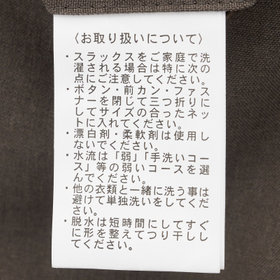 〈お取り扱いについて〉
・スラックスをご家庭で洗
濯される場合は特に次の
点にご注意してください。
・ボタン・前カン・ファス
ナーを閉じて三つ折りに
してサイズの合ったネッ
トに入れてください。
・漂白剤・柔軟剤は使用し
ないでください。
・水流は「弱」「手洗いコー
ス」等の弱いコースを選
んでください。
・他の衣類と一緒に洗う事は
避けて単独洗いをしてくだ
さい。
・脱水は短時間にしてすぐ
に形を整えてつり干しし
てください。